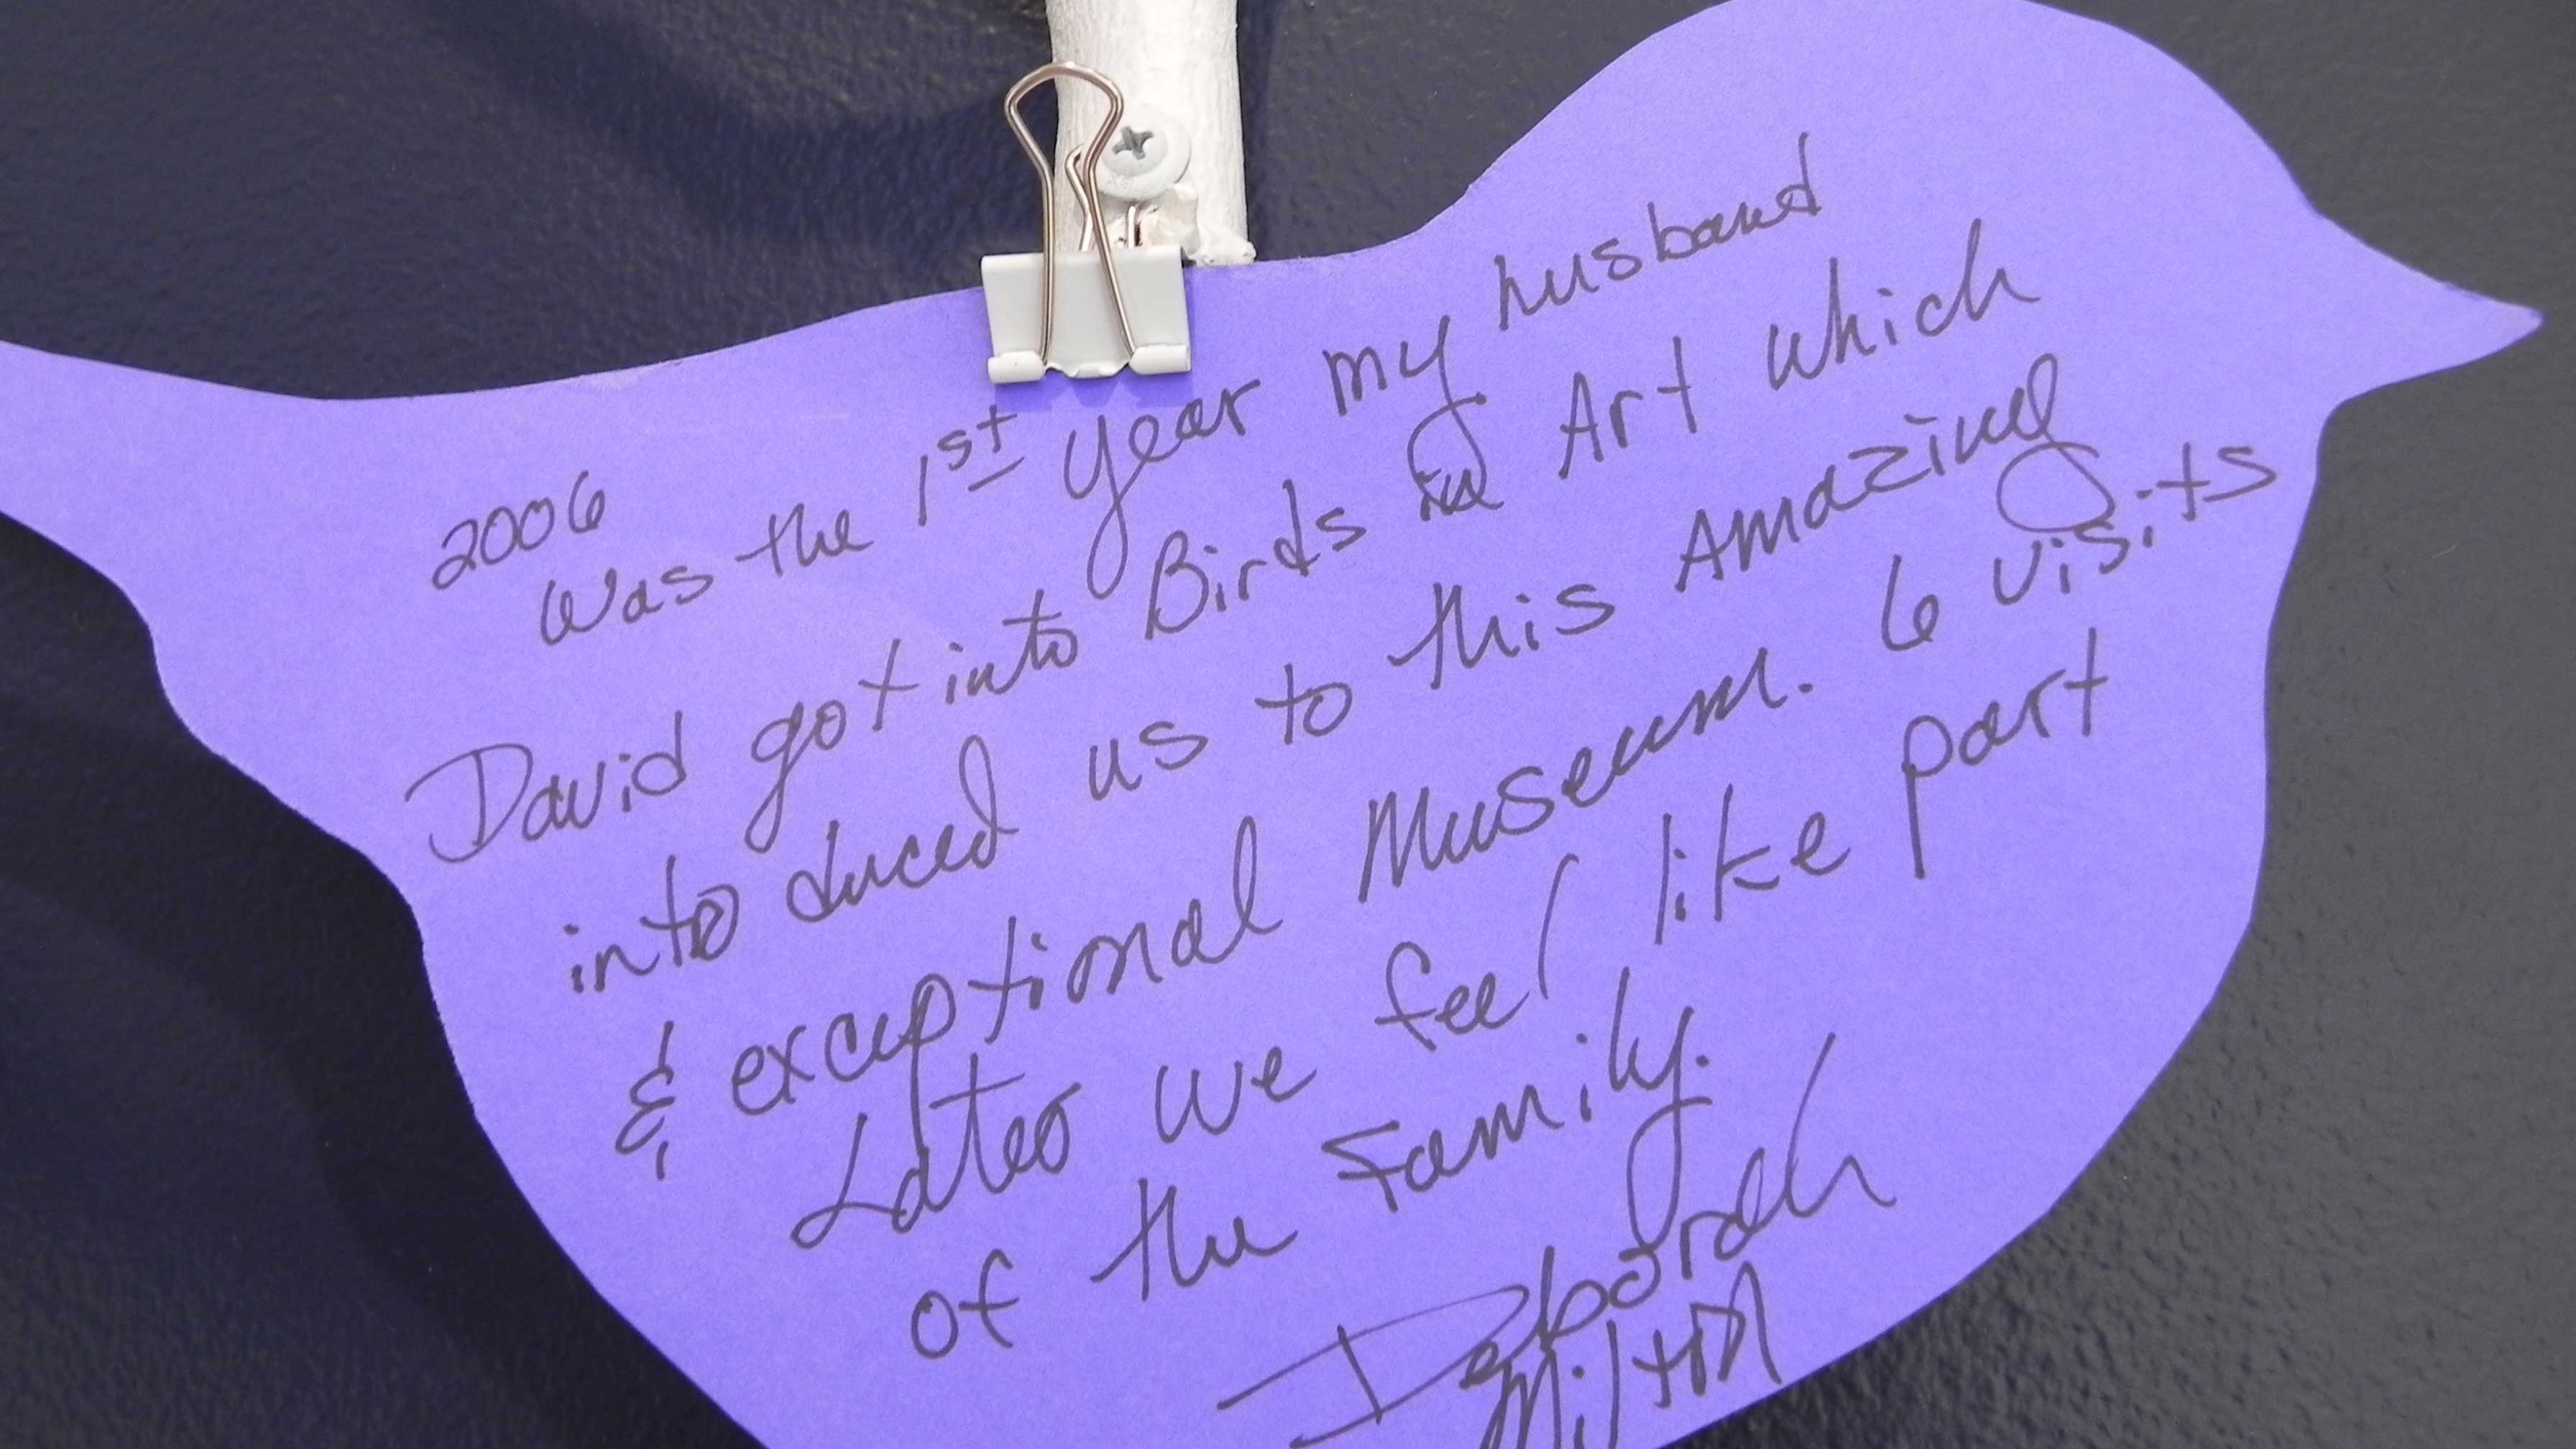 2006
Was the 1st year my husband
David got into Birds in Art which
into duced us to this Amazing
& exceptional Museum. 6 visits
Later we feel like part
of the family.
Deborah
Milton